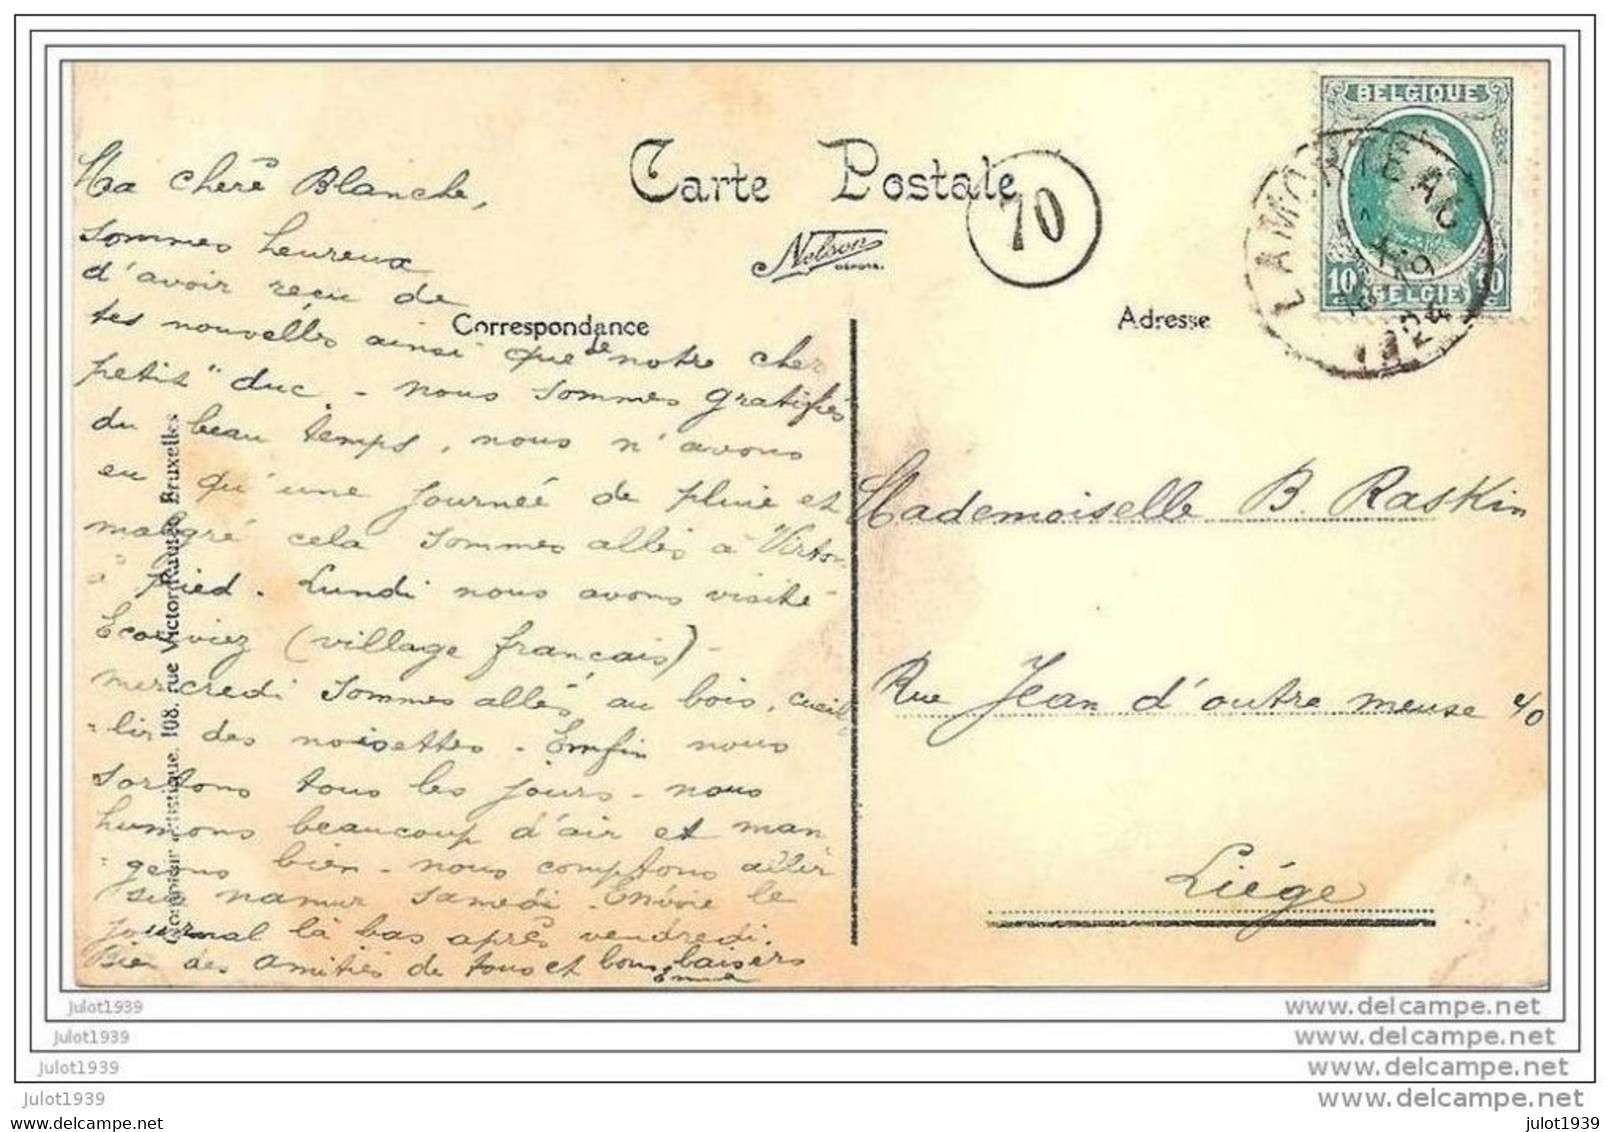 Carte Postale
70
Nelson
DÉPOSÉ.
Correspondance
Adresse
BELGIQUE
10 BELGIË 10
LAMORTEAU
1924
Ma chère Blanche,
sommes heureux
d'avoir reçu de
tes nouvelles ainsi que de notre cher
petit "duc. - nous sommes gratifiés
du beau temps, nous n'avons
eu qu'une journée de pluie et
malgré cela sommes allés à Virton
à pied. Lundi nous avons visité
Ecouviez (village français) -
mercredi sommes allés au bois, cueil
-lir des noisettes - Enfin nous
sortons tous les jours - nous
humons beaucoup d'air et man
-geons bien - nous comptons aller
sur namur samedi. Envoie le
journal là bas après vendredi.
Bien des amitiés de tous et bons baisers
Emma
108, rue Victor Rauter, Bruxelles
Mademoiselle B. Raskin
Rue Jean d'outre meuse
Liége
julot1939
www.delcampe.net
julot1939
www.delcampe.net
julot1939
www.delcampe.net
julot1939
www.delcampe.net
julot1939
julot1939